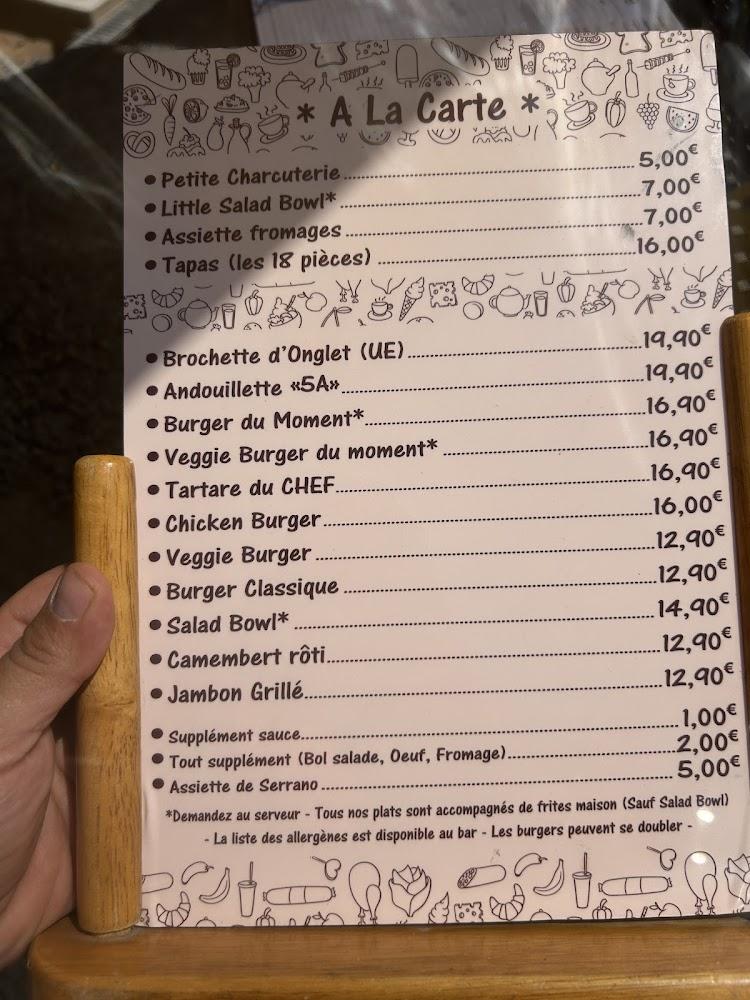 * A La Carte *
• Petite Charcuterie 5,00€
• Little Salad Bowl* 7,00€
• Assiette fromages 7,00€
• Tapas (les 18 pièces) 16,00€
• Brochette d'Onglet (UE) 19,90€
• Andouillette «5A» 19,90€
• Burger du Moment* 16,90€
• Veggie Burger du moment* 16,90€
• Tartare du CHEF 16,90€
• Chicken Burger 16,00€
• Veggie Burger 12,90€
• Burger Classique 12,90€
• Salad Bowl* 14,90€
• Camembert rôti 12,90€
• Jambon Grillé 12,90€
• Supplément sauce 1,00€
• Tout supplément (Bol salade, Oeuf, Fromage) 2,00€
• Assiette de Serrano 5,00€
*Demandez au serveur - Tous nos plats sont accompagnés de frites maison (Sauf Salad Bowl)
- La liste des allergènes est disponible au bar - Les burgers peuvent se doubler -